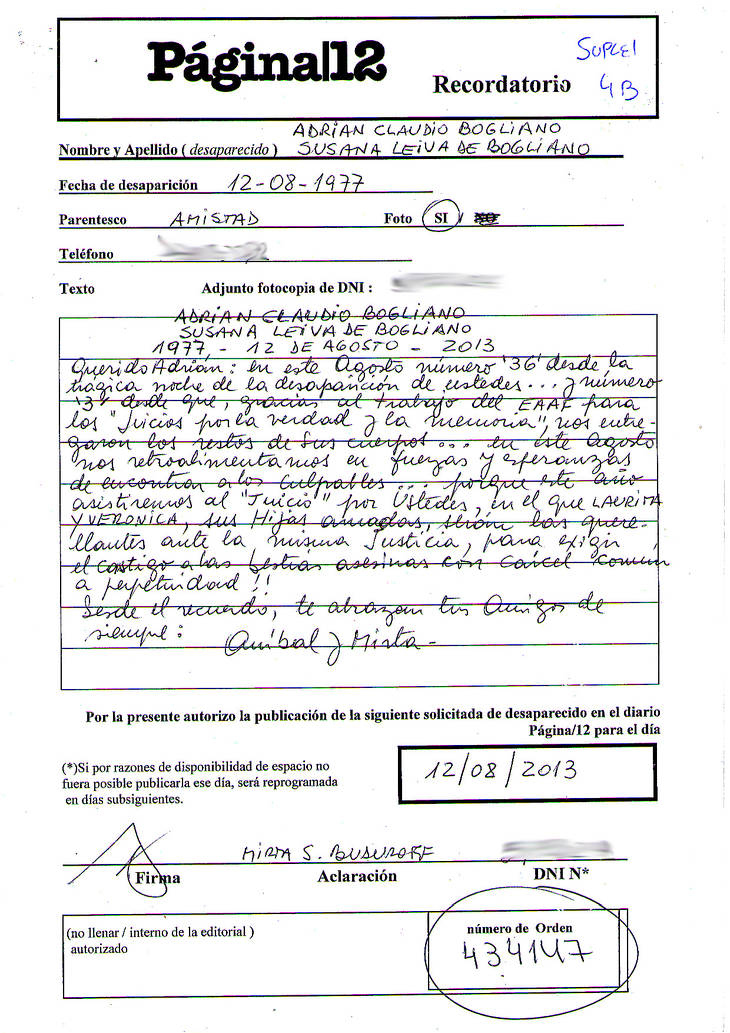 Página|12
Recordatorio
SUPLE1
4B
ADRIAN CLAUDIO BOGLIANO
Nombre y Apellido ( desaparecido ) SUSANA LEIVA DE BOGLIANO
Fecha de desaparición 12-08-1977
Parentesco AMISTAD Foto SI /
Teléfono
Texto Adjunto fotocopia de DNI :
ADRIAN CLAUDIO BOGLIANO
SUSANA LEIVA DE BOGLIANO
1977, - 12 DE AGOSTO - 2013
Querido Adrián: en este Agosto número '36' desde la
trágica noche de la desaparición de ustedes... y número
'3' desde que, gracias al trabajo del EAAF para
los "Juicios por la verdad y la memoria", nos entre-
garon los restos de sus cuerpos... en este Agosto
nos retroalimentamos en fuerzas y esperanzas
de encontrar a los culpables... porque este año
asistiremos al "Juicio" por Ustedes, en el que LAURITA
Y VERONICA, sus Hijas amadas, serán las quere-
llantes ante la misma Justicia, para exigir
el castigo a las bestias asesinas con Cárcel común
a perpetuidad!!
Desde el recuerdo, te abrazan tus Amigos de
siempre:
Aníbal y Mirta -
Por la presente autorizo la publicación de la siguiente solicitada de desaparecido en el diario
Página/12 para el día
(*)Si por razones de disponibilidad de espacio no
fuera posible publicarla ese día, será reprogramada
en días subsiguientes.
12/08/2013
MIRTA S. BUSUROFF
Firma Aclaración DNI N*
(no llenar / interno de la editorial )
autorizado
número de Orden
434147